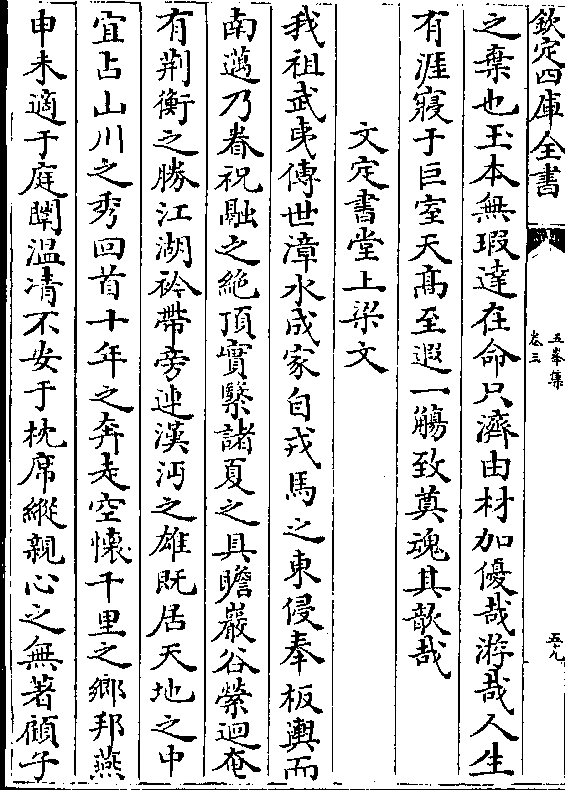 欽定四庫全書
五峯集
卷三
五九
之棄也玉本無瑕達在命只濟由材加優哉游哉人生
有涯寢于巨室天高至遐一觴致奠魂其歆哉
文定書堂上梁文
我祖武夷傳世漳水成家自戎馬之東侵奉板輿而
南邁乃眷祝融之絶頂實繄諸夏之具瞻巖谷縈迴奄
有荆衡之勝江湖衿帶旁連漢沔之雄既居天地之中
宜占山川之秀回首十年之奔走空懷千里之鄉邦燕
申未適于庭闈温凊不安于枕席縱親心之無著顧子